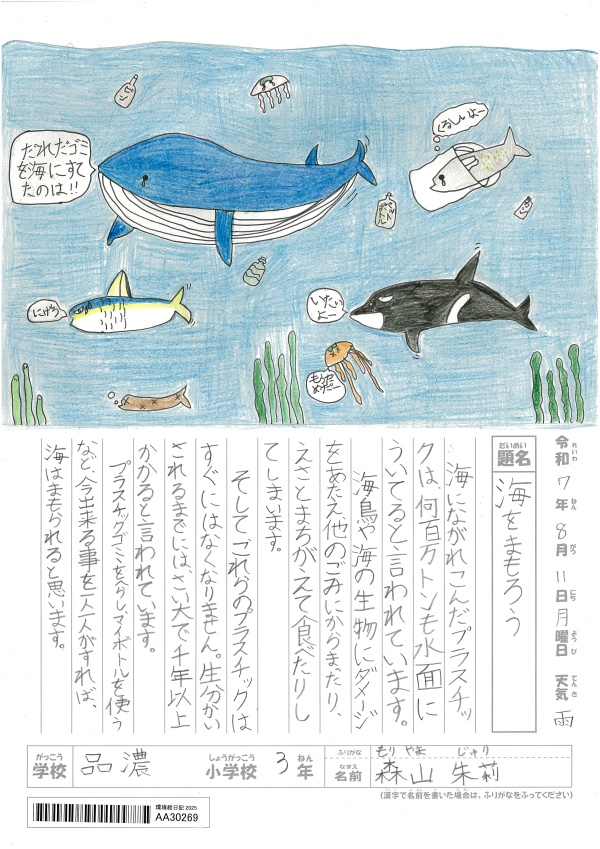 ビン
だれだゴミ
を海にすて
たのは!!
くるしいよー
ペットボトル
にげろ
いたい
よー
もうだ
めだー
令和7年8月11日月曜日 天気 雨
れいわ ねん がつ にち ようび てんき
だいめい
題名
海をまもろう
海にながれこんだプラスチッ
クは、何百万トンも水面に
ういてると言われています。
海鳥や海の生物にダメージ
をあたえ他のごみにからまったり、
えさとまちがえて食べたりし
てしまいます。
そしてこれらのプラスチックは
すぐにはなくなりません。生分かい
されるまでには、さい大で千年以上
かかると言われています。
プラスチックゴミをへらし、マイボトルを使う
など、今出来る事を一人一人がすれば、
海はまもられると思います。
がっこう
学校
品濃
しょうがっこう
小学校
3年
ねん
ふりがな
もりやま じゅり
なまえ
名前
森山 朱莉
(漢字で名前を書いた場合は、ふりがなをふってください)
環境絵日記 2025
AA30269